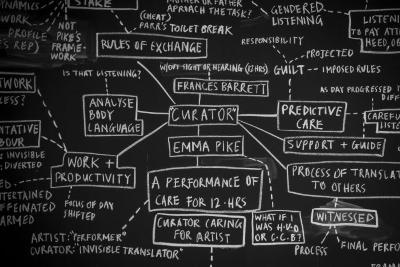 DYNAMICS
WORK
PROFILE
NOT
PIKE'S
FRAME-
WORK
STAKE
MOTHER OR FATHER
APPROACH THE TASK!
(CHEAT)
PARR'S TOILET BREAK
RULES OF EXCHANGE
GENDERED
LISTENING
RESPONSIBILITY
PROJECTED
GUILT
IMPOSED RULES
LISTENI
TO PAY ATT
W/OUT SIGHT OR HEARING (12 HRS)
FRANCES BARRETT
IS THAT LISTENING?
ANALYSE
BODY
LANGUAGE
"CURATOR"
PREDICTIVE
CARE
AS DAY PROGRESSED T
DIFF
CAREFUL
LISTE
EMMA PIKE
SUPPORT + GUIDE
TWORK
LESS?
NTATIVE
BOUR
INVISIBLE
DIVERTED
WORK +
PRODUCTIVITY
FOCUS OF DAY
SHIFTED
ED
TERTAINED
FFEINATED
ARMED
A PERFORMANCE OF
CARE FOR 12-HRS
PROCESS OF TRANSLAT
TO OTHERS
WITNESSED
PROCESS
FINAL PERFO
CURATOR CARING
FOR ARTIST
WHAT IF I
WAS H.U.O
OR C.C.B?
ARTIST: "PERFORMER"
CURATOR: "INVISIBLE TRANSLATOR"